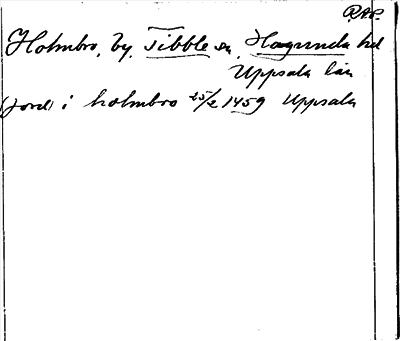 RAP.
Holmbro, by, Tibble sn, Hagunda hd
Uppsala län
(jord) i holmbro 25/2 1459 Uppsala